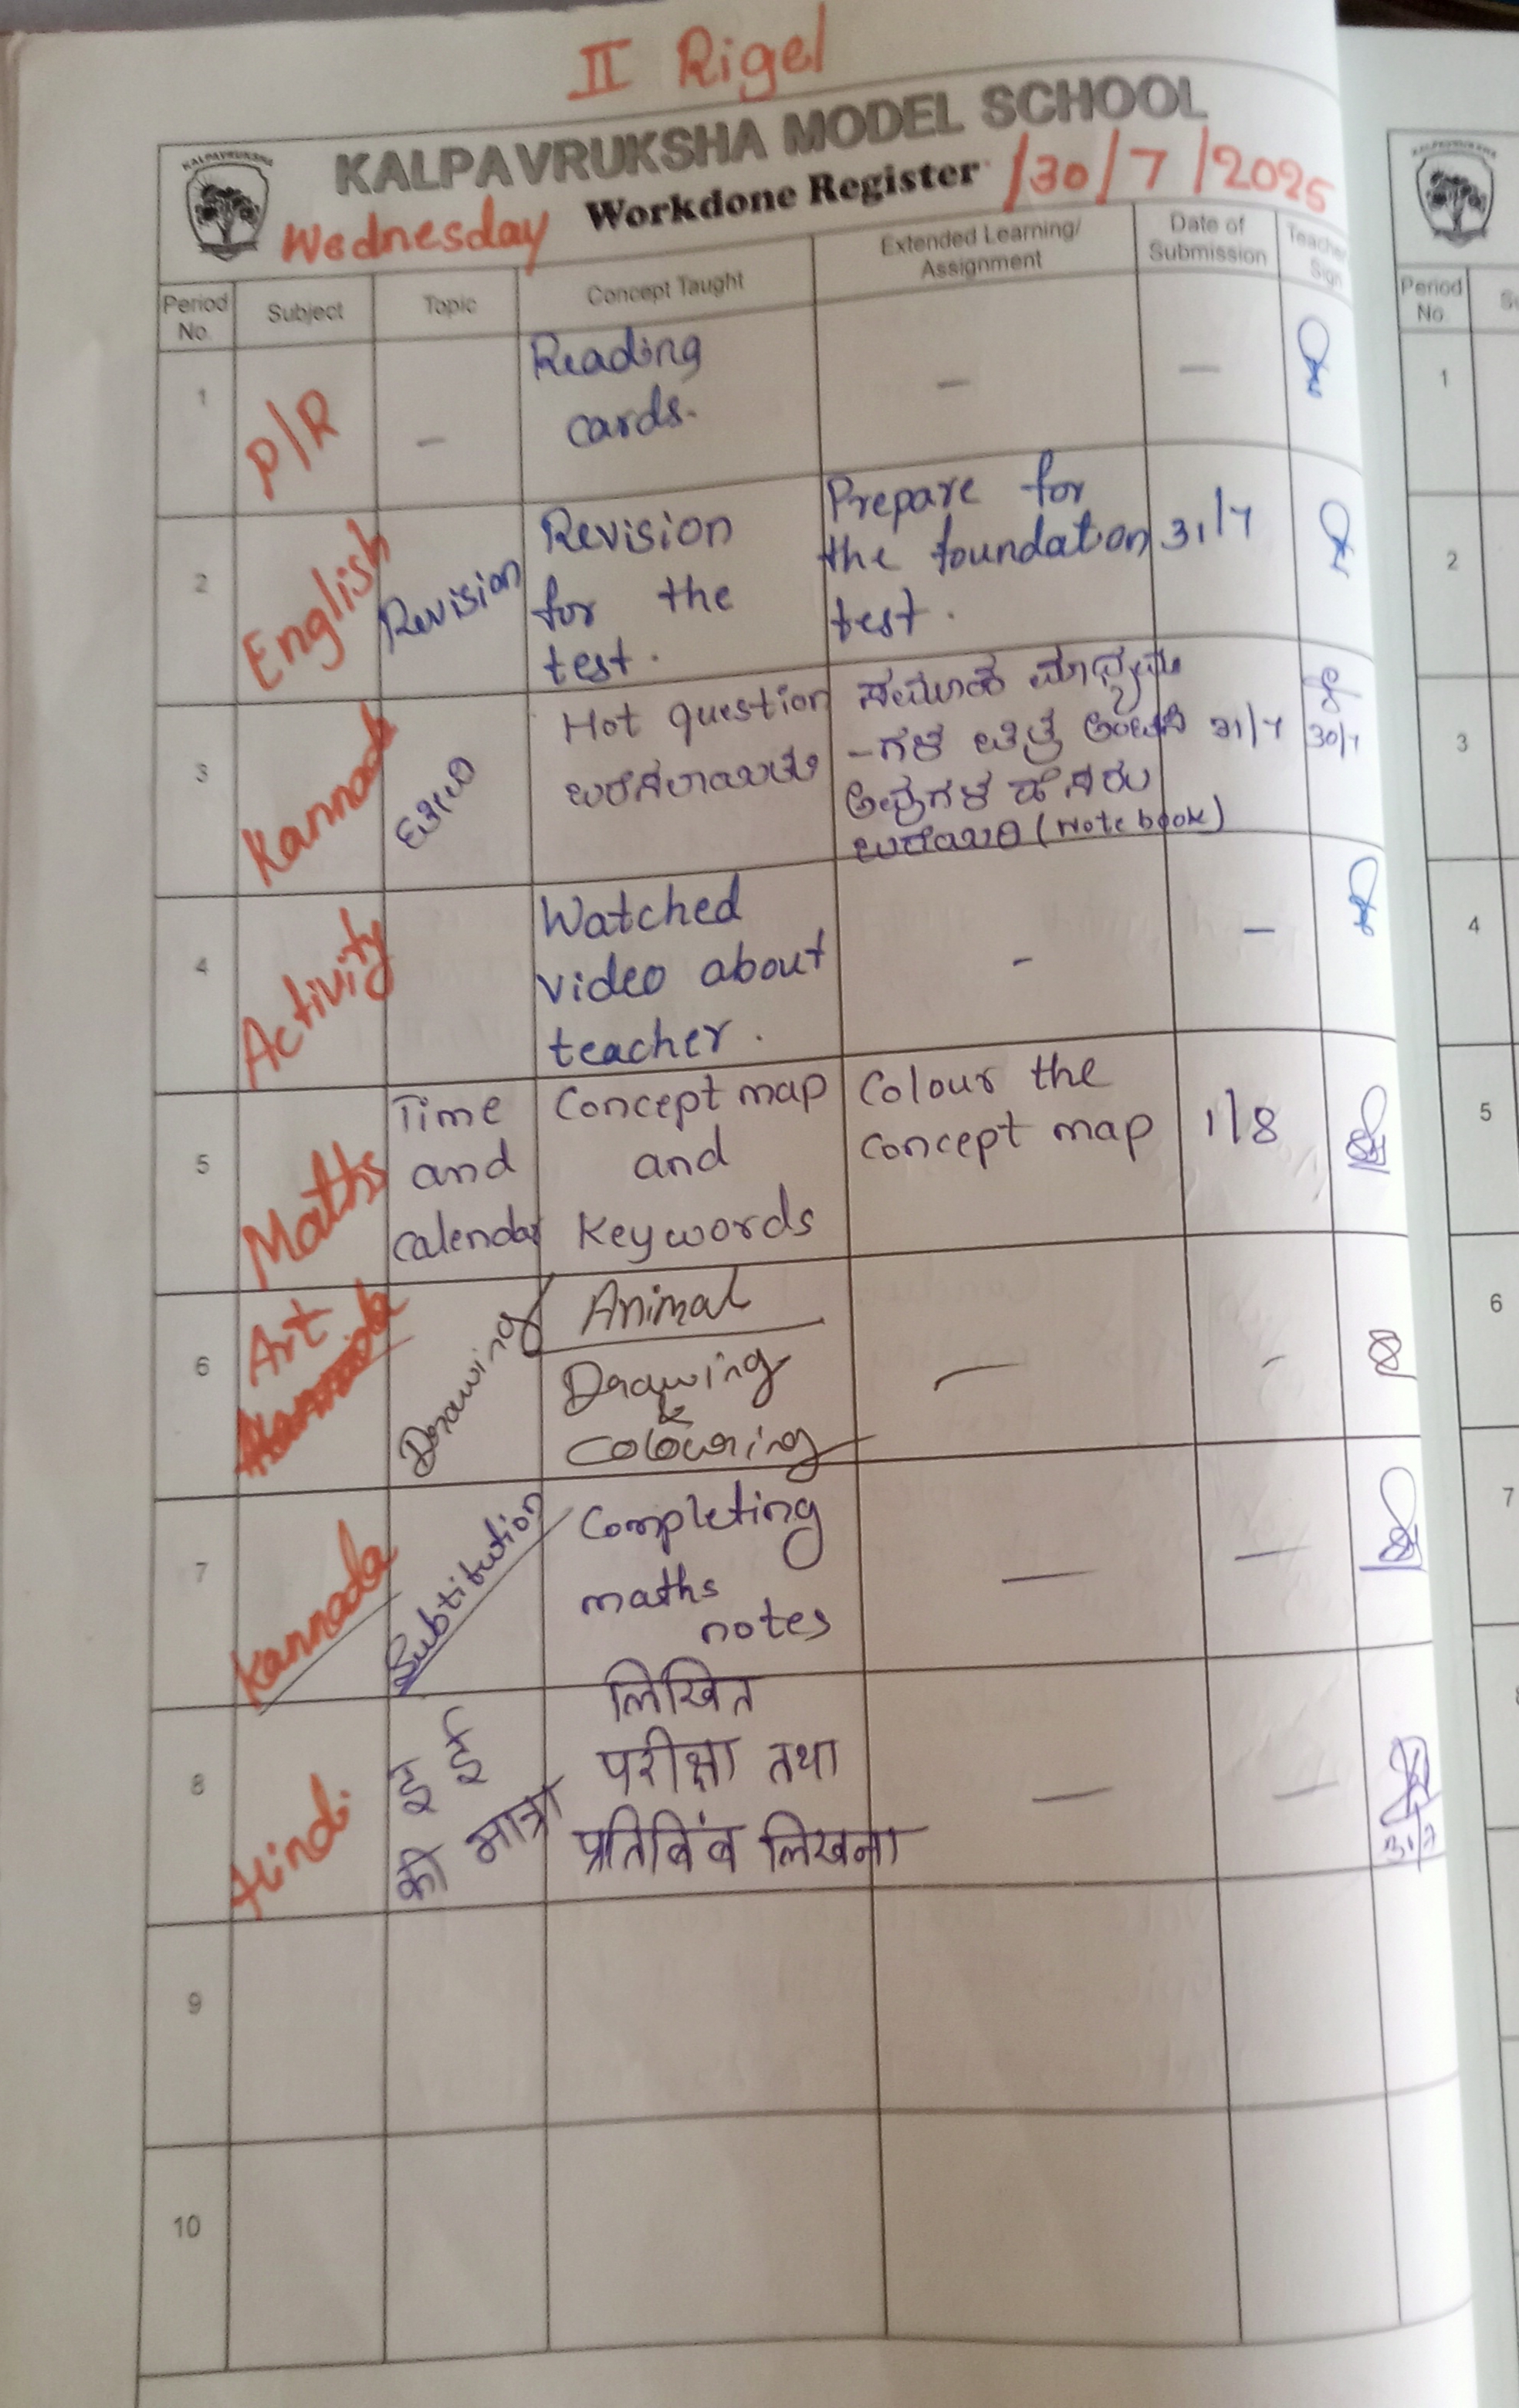 II Rigel
KALPAVRUKSHA
KALPAVRUKSHA MODEL SCHOOL
Wednesday Workdone Register /30/7/2025
Period No. Subject Topic Concept Taught Extended Learning/ Assignment Date of Submission Teacher Sign
1 P/R – Reading
cards. – –
2 English Revision Revision
for the
test.
Prepare for
the foundation 31/7
test.
3 Kannada
Hot question
ಬರೆಸಲಾಯಿತು
ಸಮೂಹ ಮಾಧ್ಯಮ
-ಗಳ ಚಿತ್ರ ಅಂಟಿಸಿ 31/7 30/7
ಅವುಗಳ ಹೆಸರು
ಬರೆಯಿರಿ (Note book)
4 Activity Watched
video about
teacher. – –
5 Maths Time
and
calendar
Concept map
and
Keywords
Colour the
concept map 1/8
6 Art Drawing Animal
Drawing
&
Colouring – –
7 Kannada Subtitution Completing
maths
notes – –
8 Hindi इ ई
की मात्रा
लिखित
परीक्षा तथा
प्रतिबिंब लिखना – –
9
10
Period No.
1
2
3
4
5
6
7